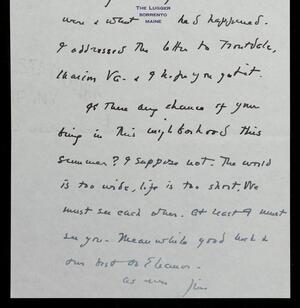 THE LUGGER
SORRENTO
MAINE
were & what had happened.
I addressed the letter to Troutdale,
Marion Va - & I hope you got it.
Is there any chance of your
being in this neighborhood this
summer? I suppose not. The world
is too wide, life is too short. We
must see each other. At least I must
see you. Meanwhile good luck &
our best to Eleanor.
as ever Jim